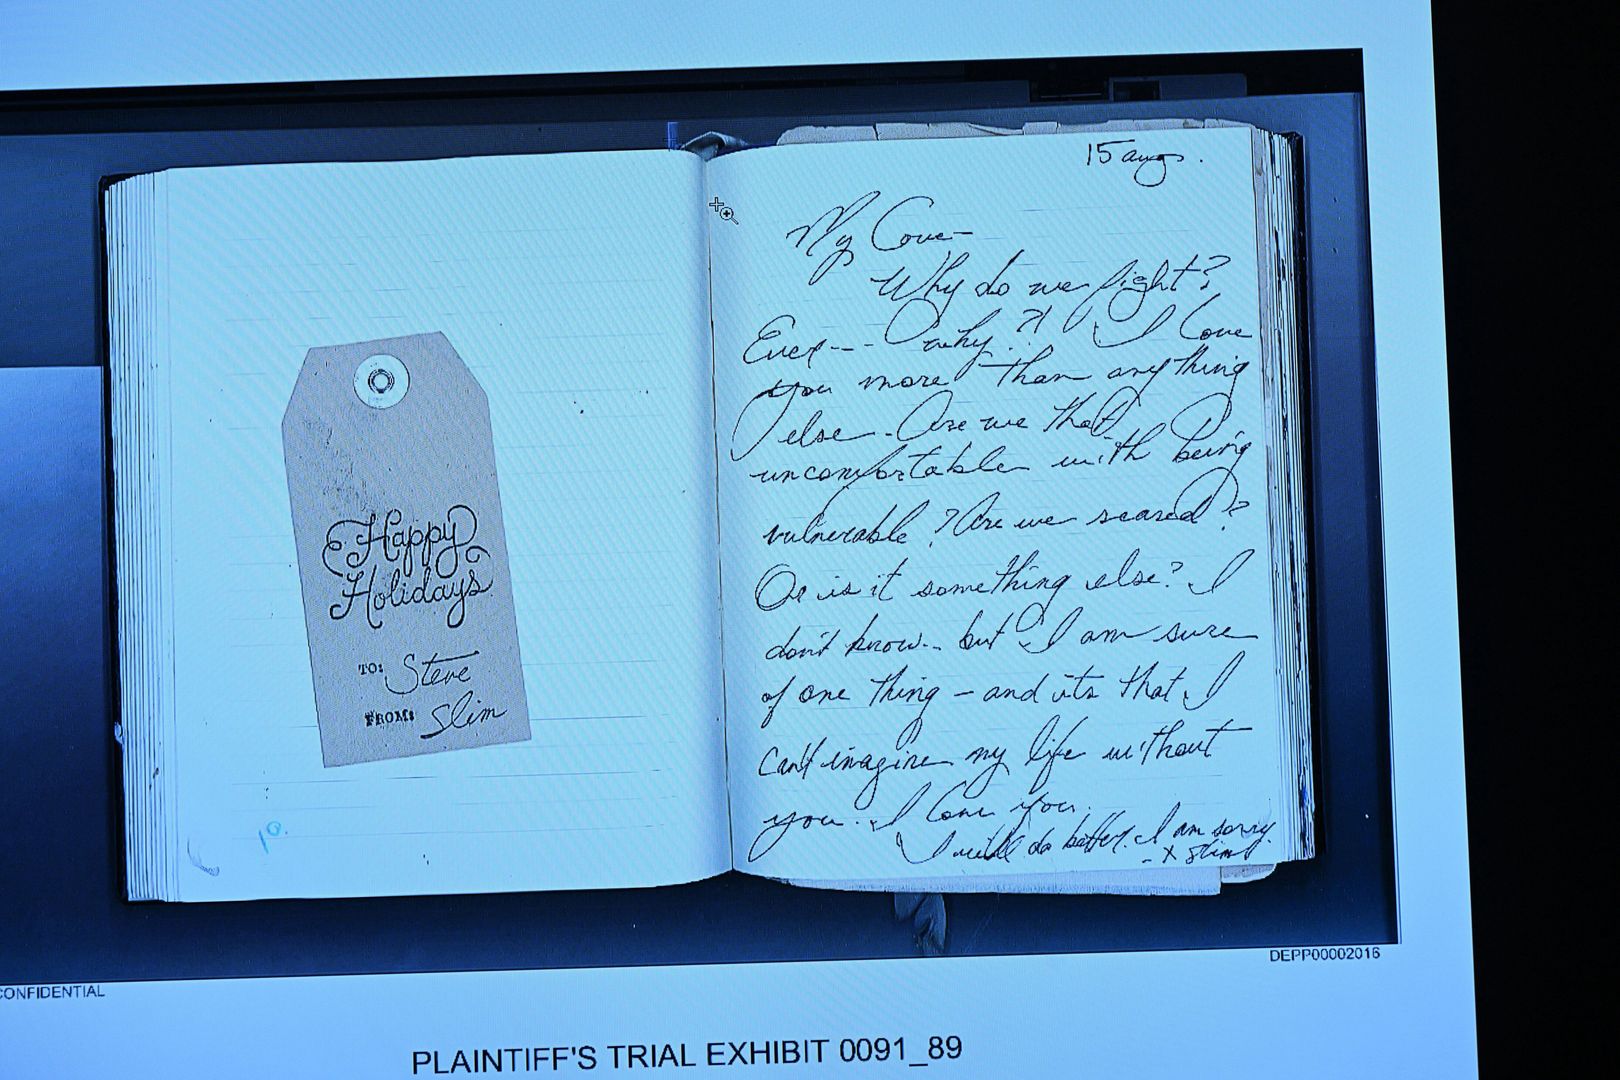 Happy
Holidays
TO: Steve
FROM: Slim
15 aug.
My Love—
Why do we fight?
Ever--- why?! I love
you more than anything
else. Are we that
uncomfortable with being
vulnerable? Are we scared?
Or is it something else? I
don't know.. but I am sure
of one thing – and its that I
can't imagine my life without
you. I love you.
I will do better. I am sorry.
- X Slim
CONFIDENTIAL
DEPP00002016
PLAINTIFF'S TRIAL EXHIBIT 0091_89